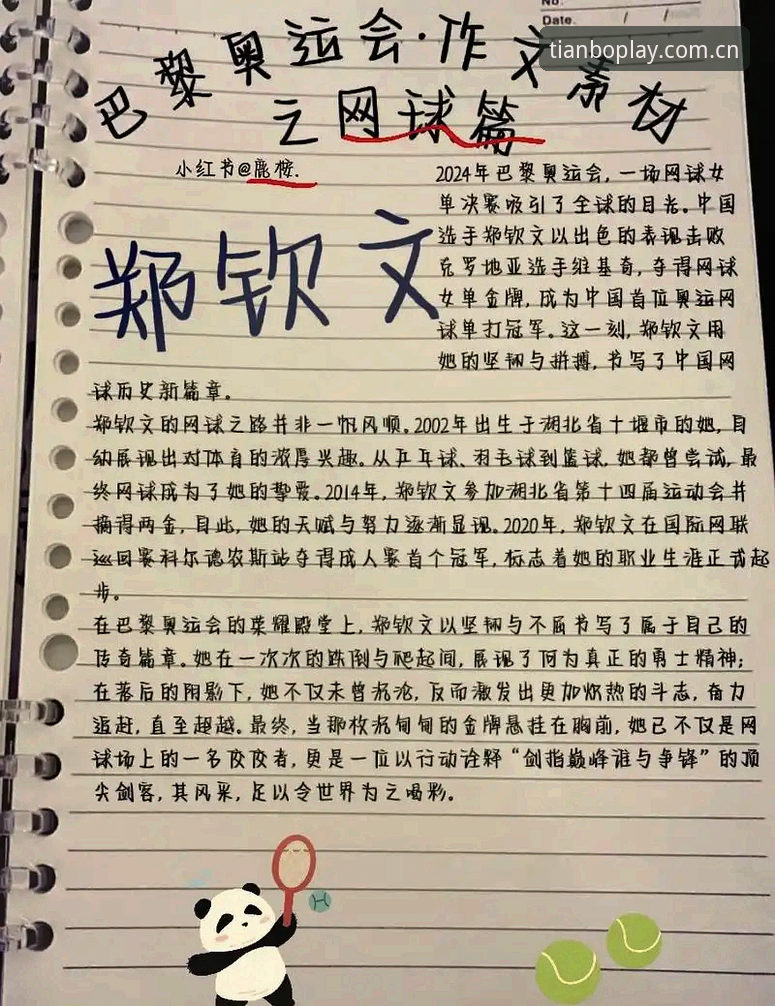 No.
Date. / /
tianboplay.com.cn
巴黎奥运会·作文素材
之网球篇
小红书@鹿桉.
郑钦文
2024年巴黎奥运会,一场网球女
单决赛吸引了全球的目光。中国
选手郑钦文以出色的表现击败
克罗地亚选手维基奇,夺得网球
女单金牌,成为中国首位奥运网
球单打冠军。这一刻,郑钦文用
她的坚韧与拼搏,书写了中国网
球历史新篇章。
郑钦文的网球之路并非一帆风顺。2002年出生于湖北省十堰市的她,自
幼展现出对体育的浓厚兴趣。从乒乓球、羽毛球到篮球,她都曾尝试,最
终网球成为了她的挚爱。2014年,郑钦文参加湖北省第十四届运动会并
摘得两金,自此,她的天赋与努力逐渐显现。2020年,郑钦文在国际网联
巡回赛科尔德农斯站夺得成人赛首个冠军,标志着她的职业生涯正式起
步。
在巴黎奥运会的荣耀殿堂上,郑钦文以坚韧与不屈书写了属于自己的
传奇篇章。她在一次次的跌倒与爬起间,展现了何为真正的勇士精神;
在落后的阴影下,她不仅未曾沉沦,反而激发出更加炽热的斗志,奋力
追赶,直至超越。最终,当那枚沉甸甸的金牌悬挂在胸前,她已不仅是网
球场上的一名佼佼者,更是一位以行动诠释“剑指巅峰谁与争锋”的顶
尖剑客,其风采,足以令世界为之喝彩。